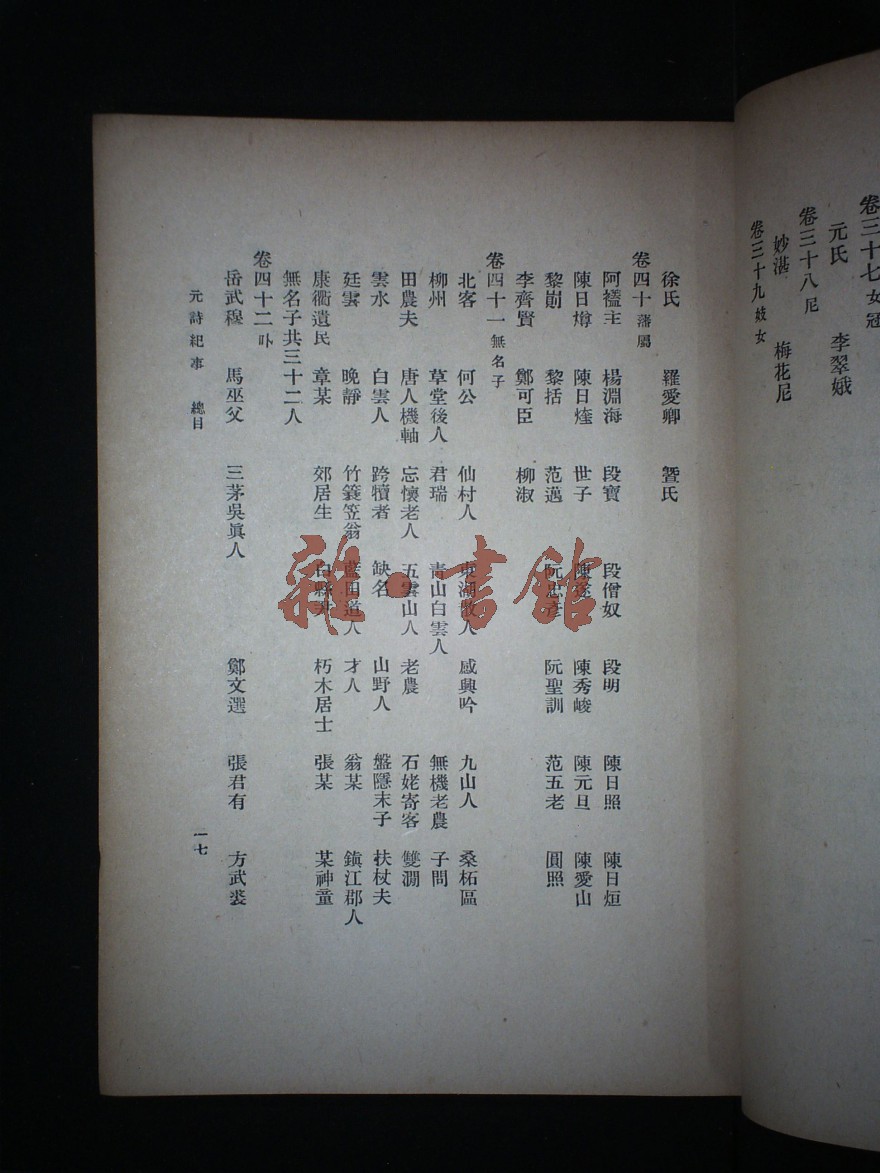 卷三十七 女冠
元氏 李翠娥
卷三十八 尼
妙湛 梅花尼
卷三十九 妓女
徐氏 羅愛卿 曁氏
卷四十 藩屬
阿𧞔主 楊淵海 段寶 段僧奴 段明 陳日照 陳日烜
陳日燇 陳日煃 世子 陳遂 陳秀峻 陳元旦 陳愛山
黎崱 黎括 范邁 阮忠彥 阮聖訓 范五老 圓照
李齊賢 鄭可臣 柳淑
卷四十一 無名子
北客 何公 仙村人 東湖牧人 感興吟 九山人 桑柘區
柳州 草堂後人 君瑞 青山白雲人 無機老農 子問
田農夫 唐人機軸 忘懷老人 五雲山人 老農 石姥寄客 雙澗
雲水 白雲人 跨犢者 缺名 山野人 盤隱末子 扶杖夫
廷雲 晚靜 竹簑笠翁 藍田道人 才人 翁某 鎮江郡人
康衢遺民 章某 郊居生 白縣尹 朽木居士 張某 某神童
無名子共三十二人
卷四十二 卟
岳武穆 馬巫父 三茅吳眞人 鄭文選 張君有 方武裘
元詩紀事 總目 一七
雜·書館